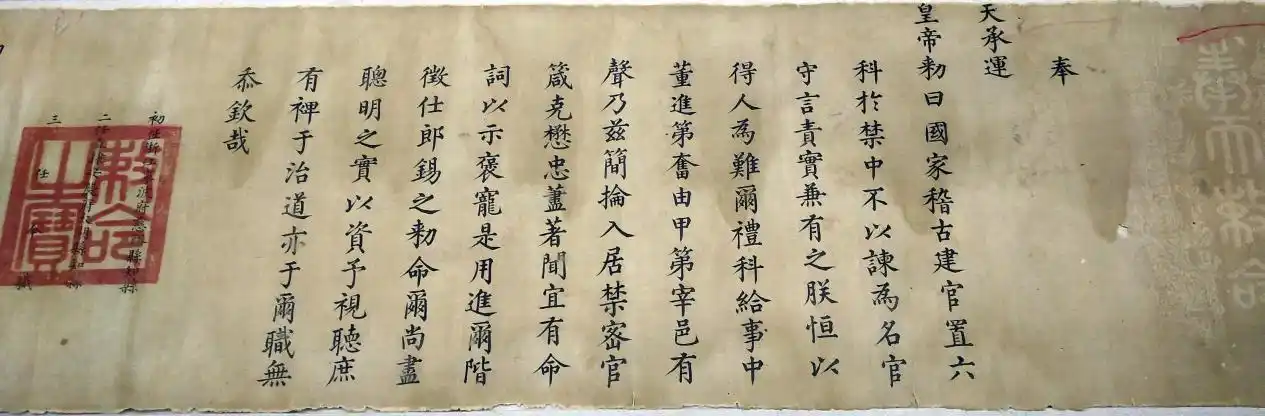 奉天敕命
奉
天承運
皇帝勑曰國家稽古建官置六
科於禁中不以諫為名官
守言責實兼有之朕恒以
得人為難爾禮科給事中
董進第奮由甲第宰邑有
聲乃兹簡掄入居禁密官
箴克懋忠藎著聞宜有命
詞以示褒寵是用進爾階
徵仕郎錫之勑命爾尚盡
聰明之實以資予視聽庶
有裨于治道亦于爾職無
忝欽哉
初任浙江府縣知縣
二任縣知縣
三任今職
敕命之寶